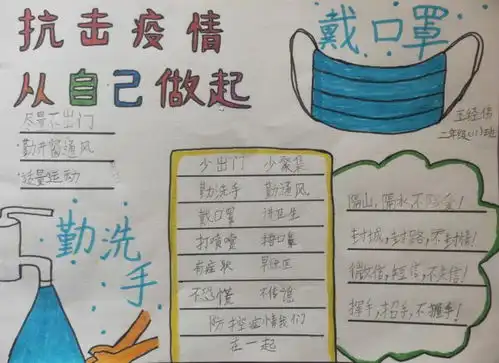 抗击疫情
从自己做起
戴口罩
二年级(1)班
尽量不出门
勤开窗通风
适量运动
勤洗手
少出门 少聚集
勤洗手 勤通风
戴口罩 讲卫生
打喷嚏 捂口鼻
有症状 早
不恐慌 不传谣
防控疫情我们
在一起
隔山,隔水,不隔爱!
封城,封路,不封情!
微信,短信,不失信!
挥手,招手,不握手!